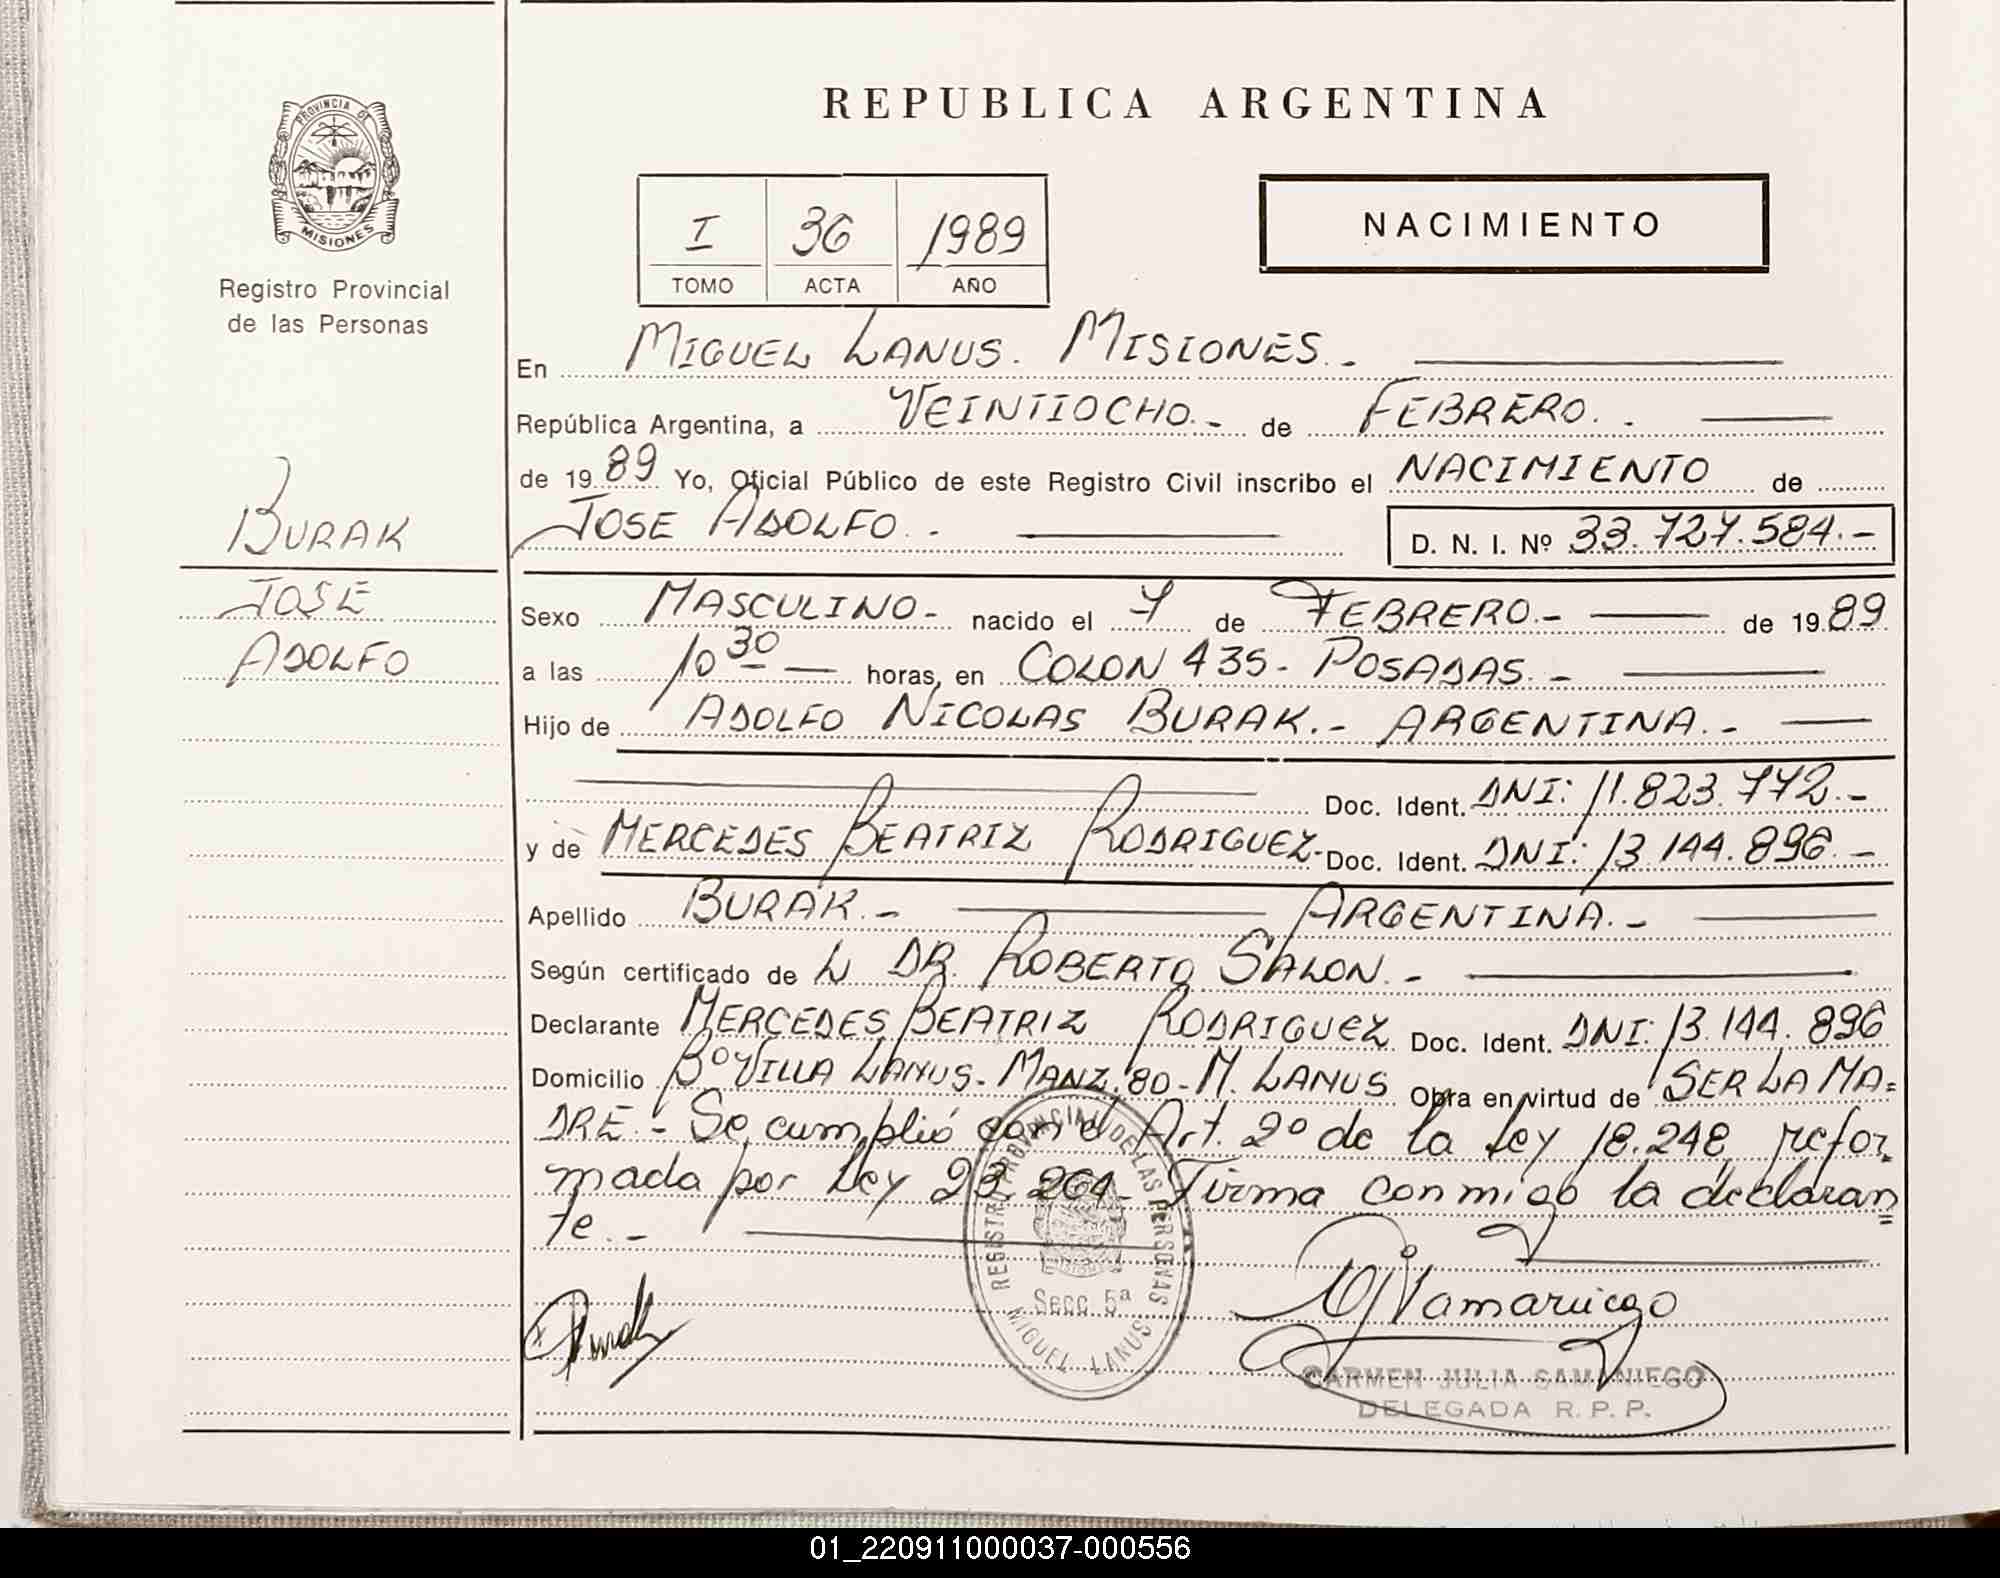 PROVINCIA DE
MISIONES
Registro Provincial
de las Personas
BURAK
JOSE
ADOLFO
REPUBLICA ARGENTINA
I 36 1989
TOMO ACTA AÑO
NACIMIENTO
En MIGUEL LANUS. MISIONES.-
República Argentina, a VEINTIOCHO.- de FEBRERO. .
de 1989 Yo, Oficial Público de este Registro Civil inscribo el NACIMIENTO de
JOSE ADOLFO. - D. N. I. Nº 33.727.584.-
Sexo MASCULINO- nacido el 7 de FEBRERO.- de 1989
a las 10 30 horas, en COLON 435- POSADAS.-
Hijo de ADOLFO NICOLAS BURAK.- ARGENTINA.-
Doc. Ident. DNI: 11.823.772.-
y de MERCEDES BEATRIZ RODRIGUEZ- Doc. Ident. DNI: 13.144.896.-
Apellido BURAK.- ARGENTINA.-
Según certificado de L DR. ROBERTO SALON.-
Declarante MERCEDES BEATRIZ RODRIGUEZ Doc. Ident. DNI: 13.144.896
Domicilio Bº VILLA LANUS- MANZ. 80- M. LANUS Obra en virtud de SER LA MA=
DRE.- Se cumplió con el Art. 2º de la Ley 18.248, refor
mada por Ley 23.264- Firma conmigo la declaran=
te.-
REGISTRO PROVINCIAL DE LAS PERSONAS
Secc. 5ª
MIGUEL LANUS
CARMEN JULIA SAMANIEGO
DELEGADA R. P. P.
01_220911000037-000556